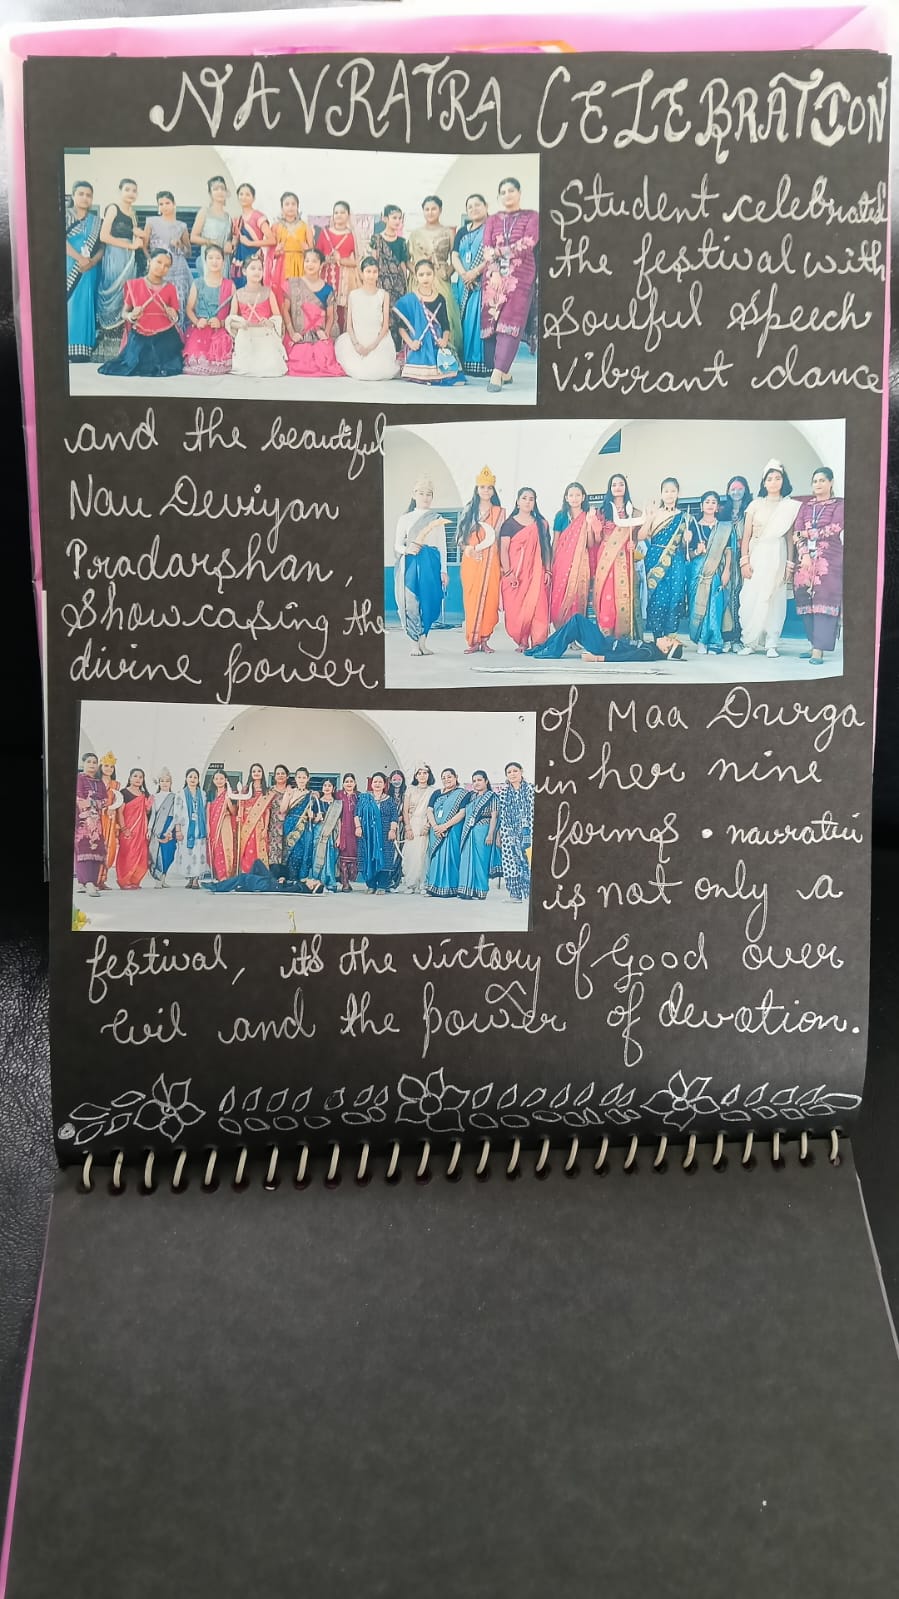 NAVRATRA CELEBRATION
Student celebrated
the festival with
Soulful Speech
Vibrant dance
and the beautiful
Nau Deviyan
Pradarshan,
Showcasing the
divine power
of Maa Durga
in her nine
forms. navratri
is not only a
festival, its the victory of Good over
Evil and the power of devotion.